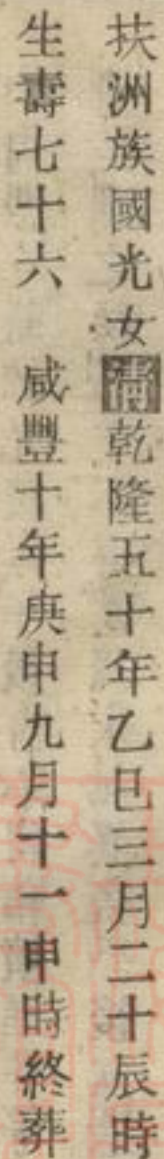 扶洲族國光女清乾隆五十年乙巳三月二十辰時
生壽七十六 咸豐十年庚申九月十一申時終葬